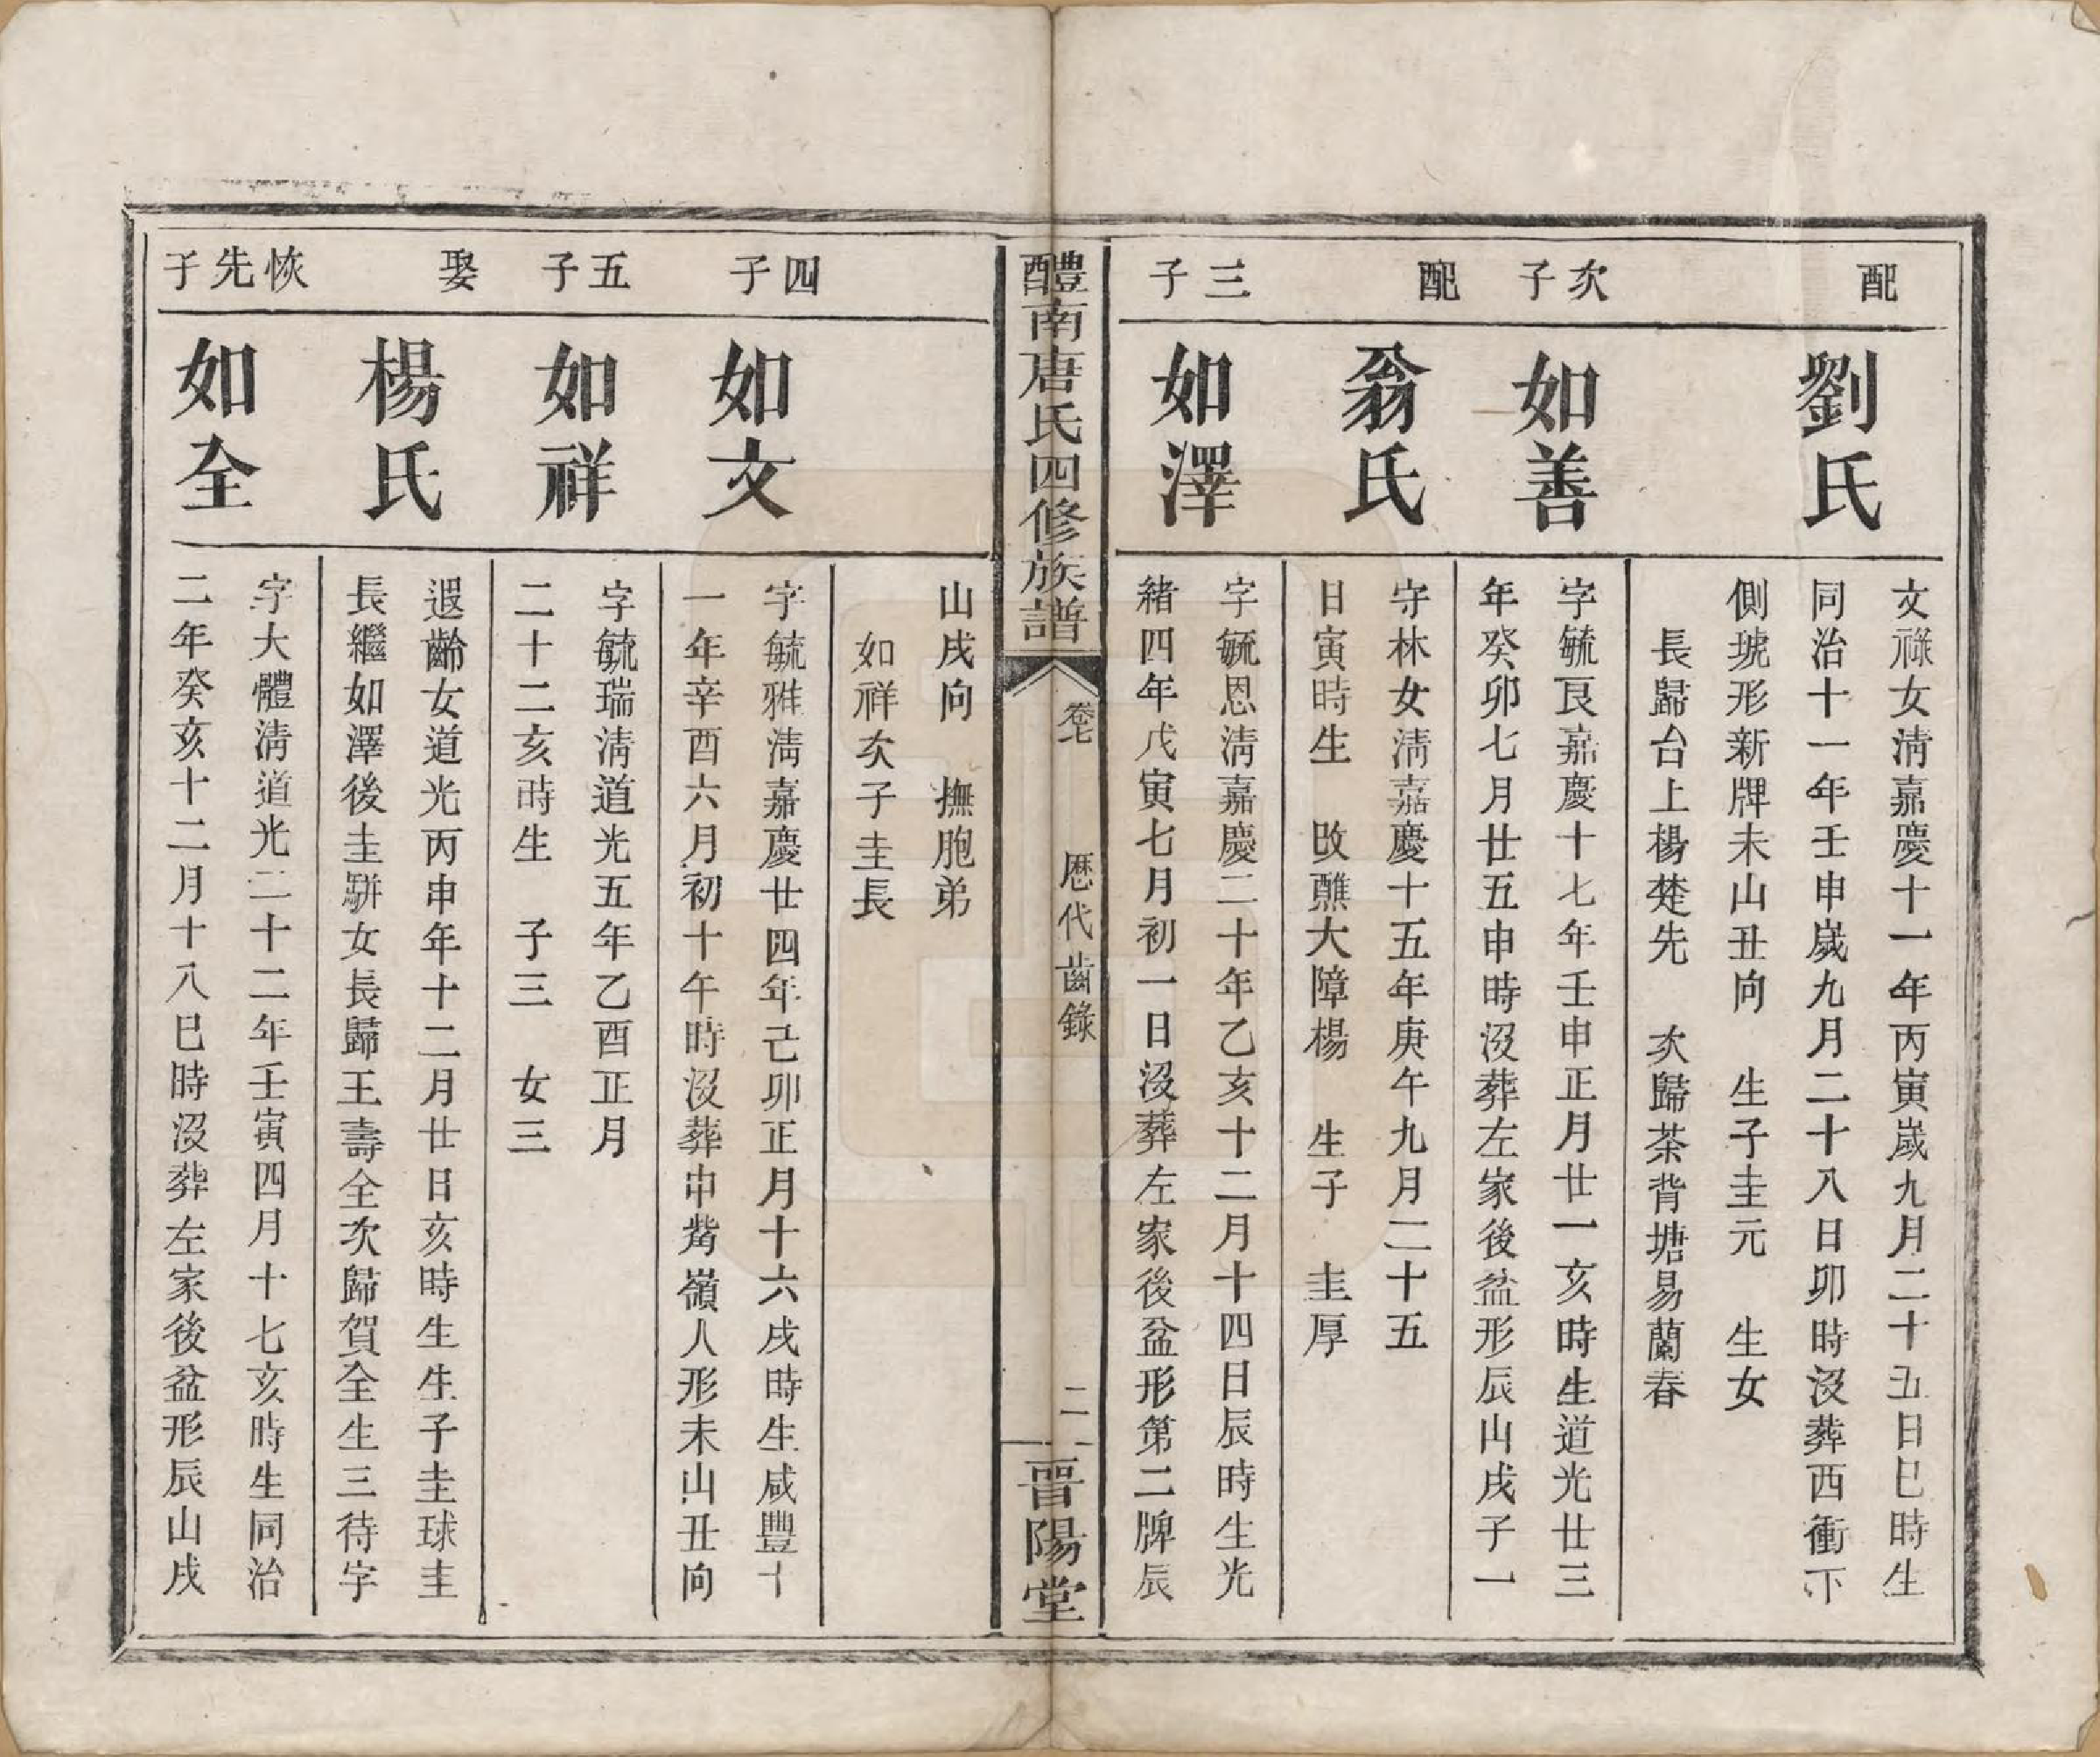 配
劉氏
文祿女淸嘉慶十一年丙寅歲九月二十五日巳時生
同治十一年壬申歲九月二十八日卯時沒葬西衝下
側琥形新牌未山丑向　生子圭元　生女
長歸台上楊楚先　次歸茶背塘易蘭春
次子
如善
字毓艮嘉慶十七年壬申正月廿一亥時生道光廿三
年癸卯七月廿五申時沒葬左家後盆形辰山戌子一
配
翁氏
守林女淸嘉慶十五年庚午九月二十五
日寅時生　改醮大障楊　生子　圭厚
三子
如澤
字毓恩淸嘉慶二十年乙亥十二月十四日辰時生光
緒四年戊寅七月初一日沒葬左家後盆形第二牌辰
醴南唐氏四修族譜
卷七
歷代齒錄
二
晉陽堂
山戌向　撫胞弟
如祥次子圭長
四子
如文
字毓雅淸嘉慶廿四年己卯正月十六戌時生咸豐十
一年辛酉六月初十午時沒葬中嶺人形未山丑向
五子
如祥
字毓瑞淸道光五年乙酉正月
二十二亥時生　子三　女三
娶
楊氏
遐齡女道光丙申年十二月廿日亥時生生子圭球圭
長繼如澤後圭駢女長歸王壽全次歸賀全生三待字
恢先子
如全
字大體淸道光二十二年壬寅四月十七亥時生同治
二年癸亥十二月十八巳時沒葬左家後盆形辰山戌